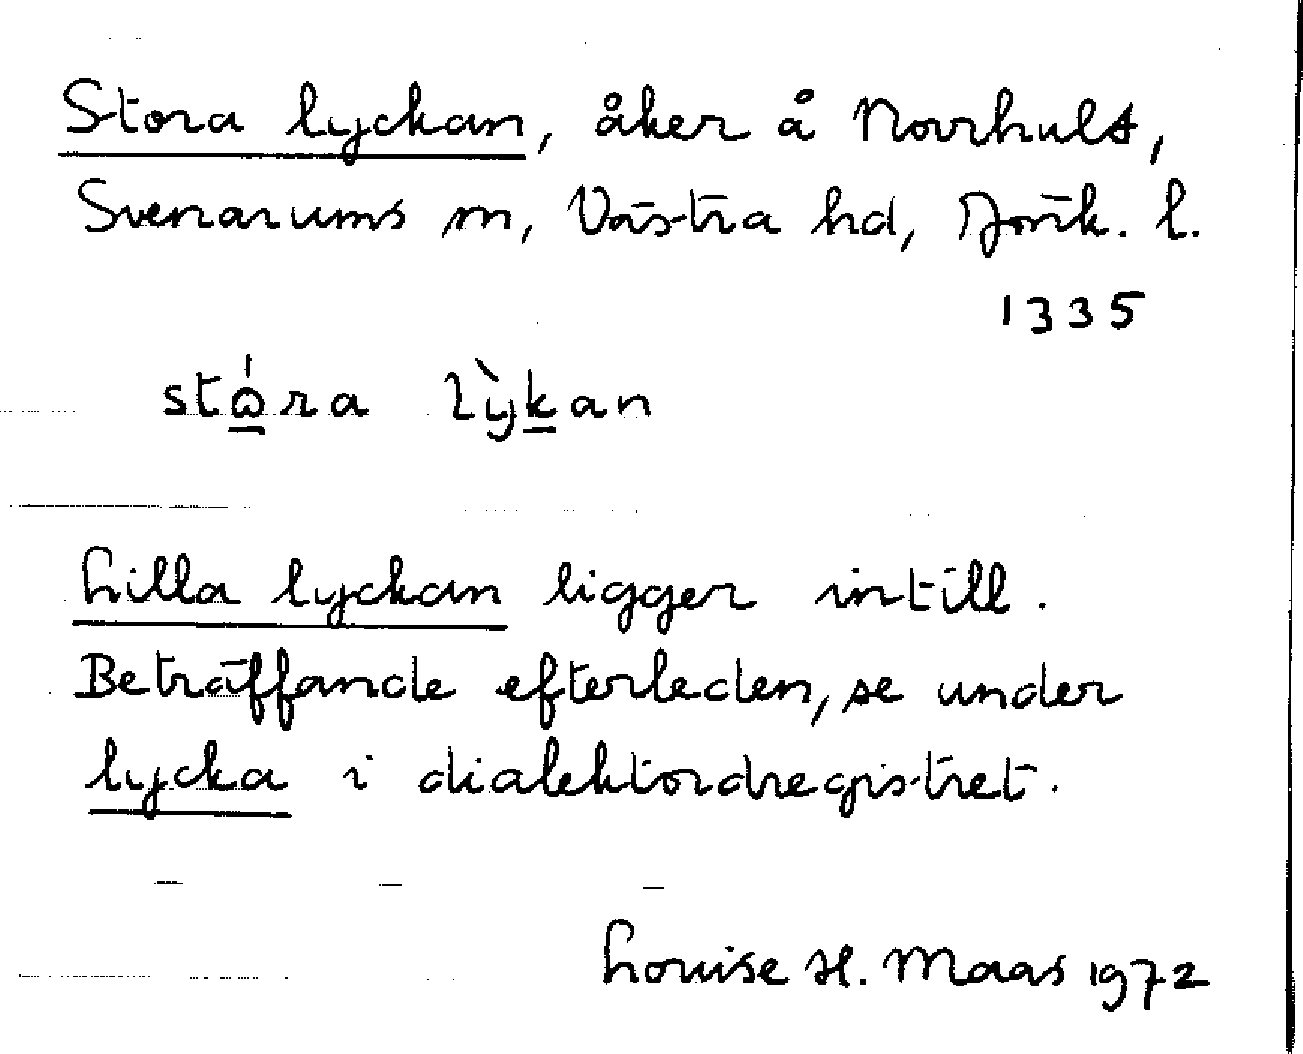 Stora lyckan, åker å Norrhult,
Svenarums sn, Västra hd, Jönk. l.
1335
lilla lyckan ligger intill.
Beträffande efterleden, se under
lycka i dialektordregistret.
Louise H. Maas 1972